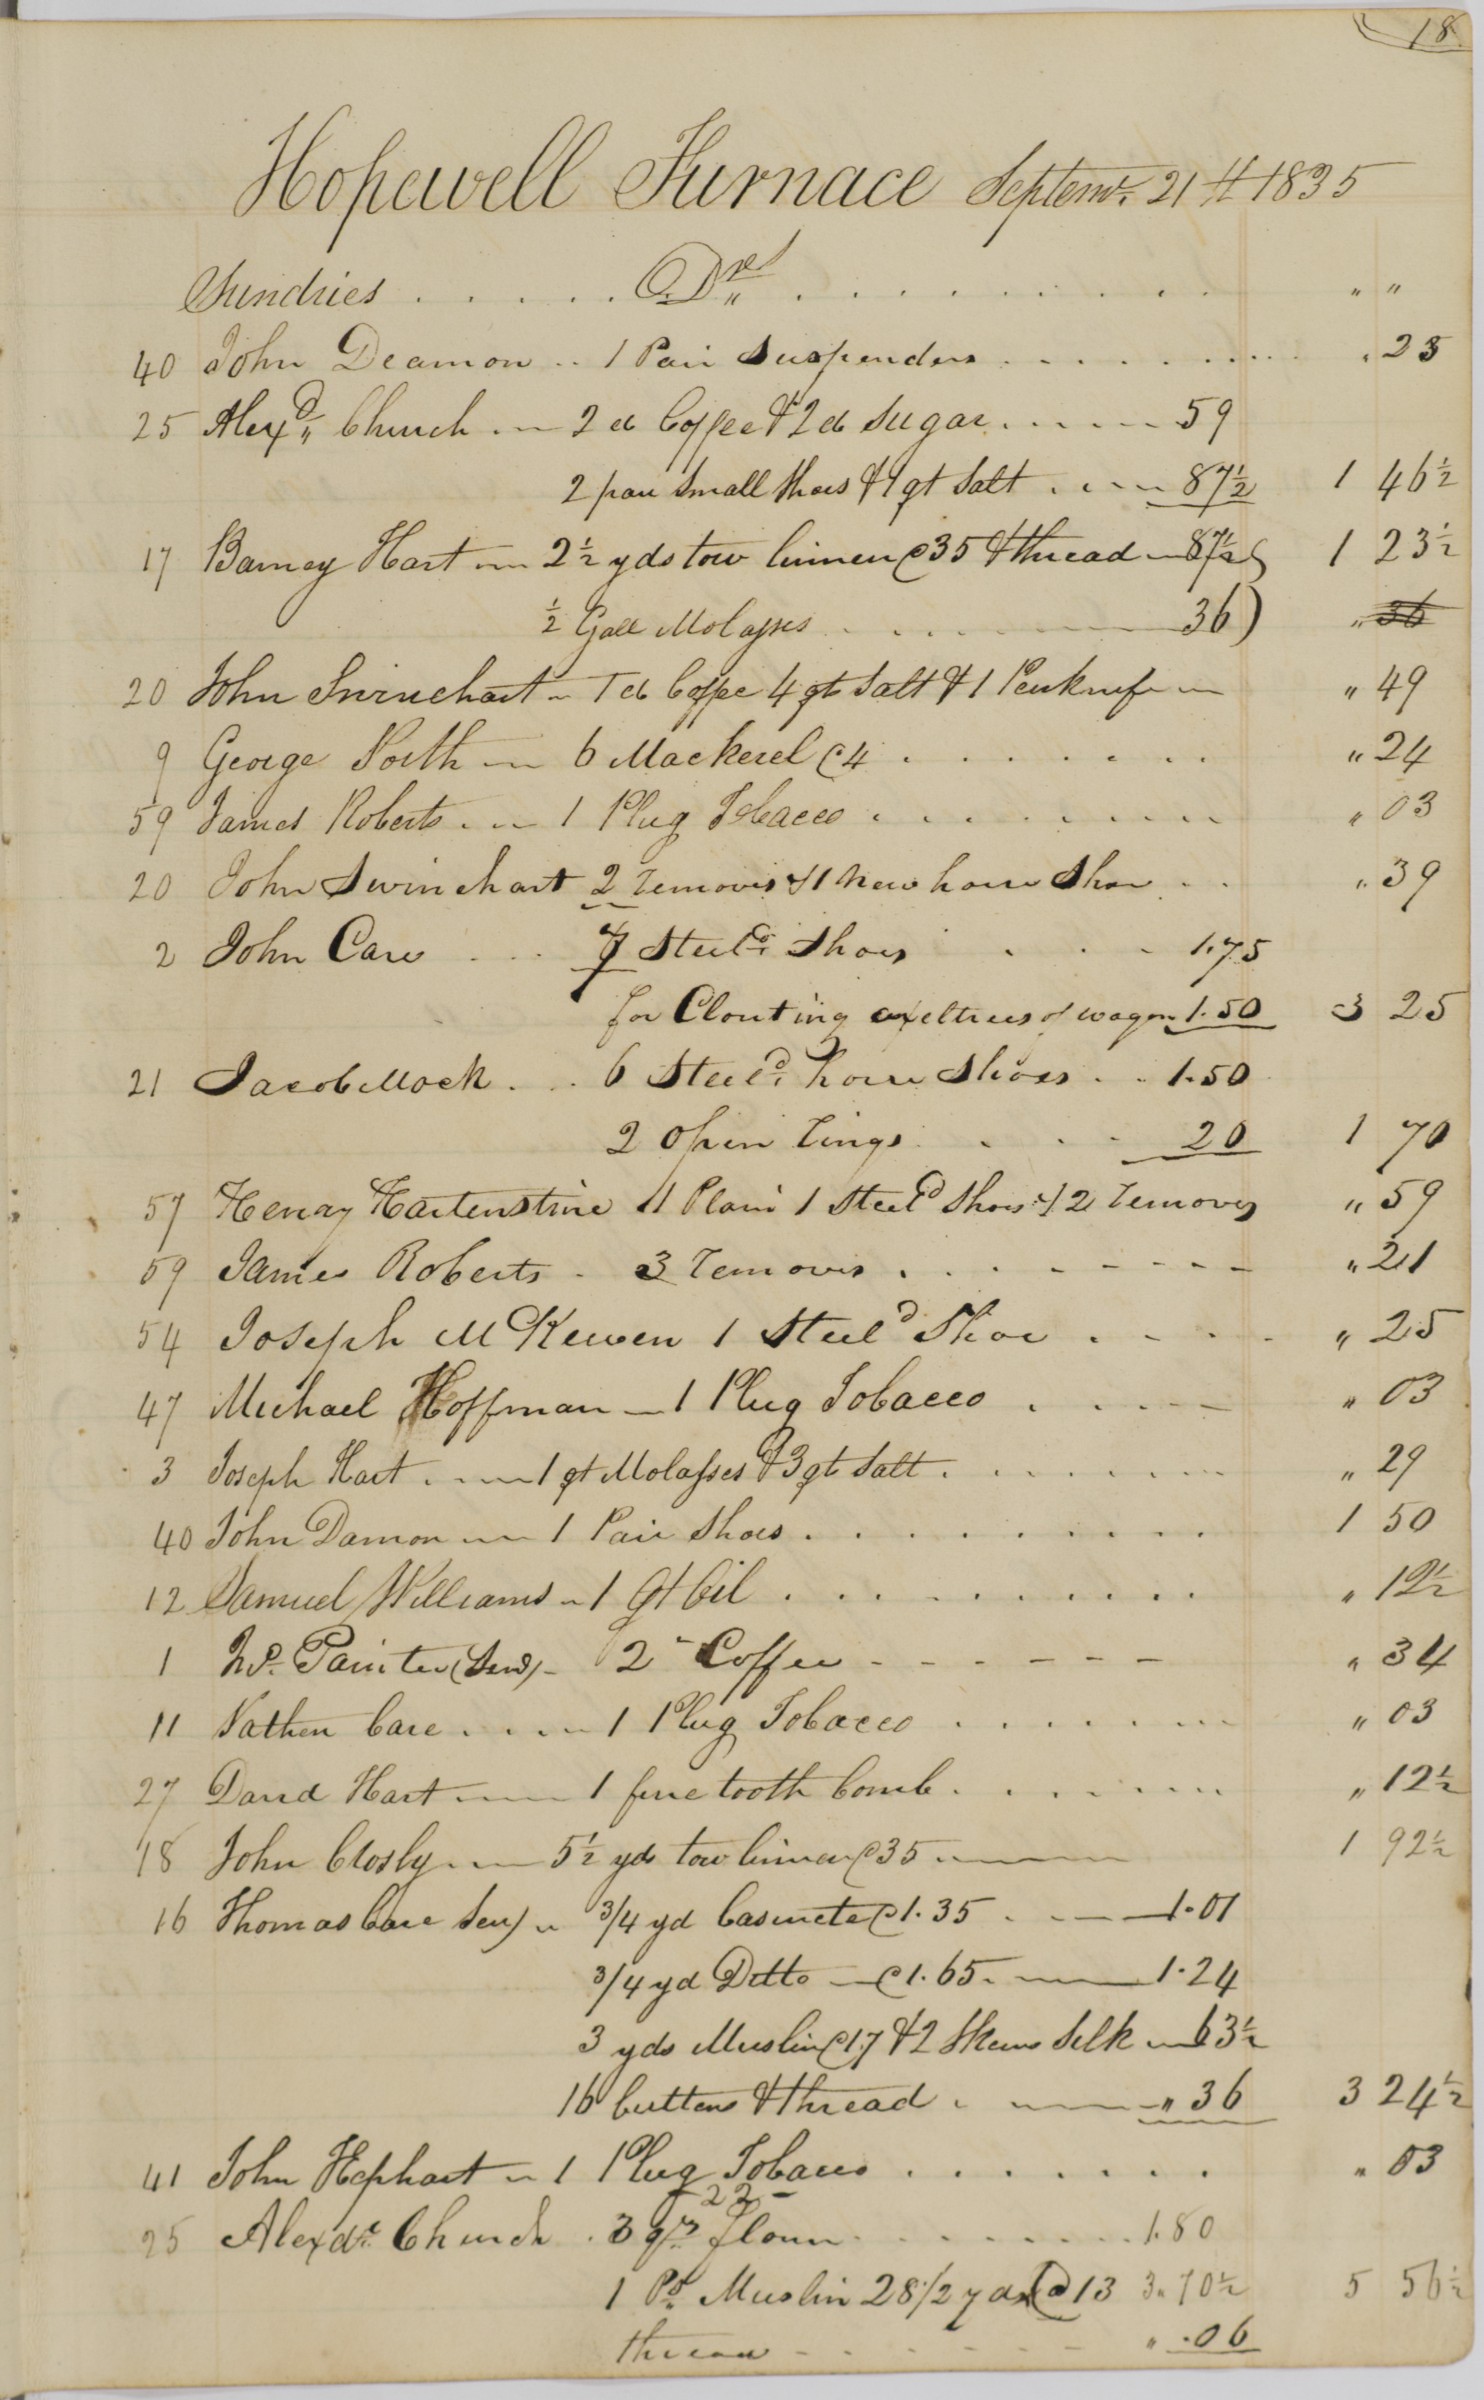 18
Hopewell Furnace Septemr. 21st 1835
Sundries . . . . . . Drs . . . . . . . . . . " "
40 John Deamon .. 1 Pair Suspenders . . . . . . . . " 25
25 Alexd. Church . — 2 lb Coffee & 2 lb Sugar . . . . 59
2 pair Small Shoes & 1 qt Salt . . . 87½ 1 46½
17 Barney Hart — 2½ yds tow linnen @ 35 & thread — 87½ 1 23½
½ Gall Molasses . . . 36) " 36
20 John Swinehart — 1 lb Coffee 4 qts Salt & 1 Penknife — " 49
9 George North — 6 Mackerel @ 4 . . . . . . . " 24
59 James Roberts . — 1 Plug Tobacco . . . . . . . " 03
20 John Swinehart 2 removes & 1 new horse Shoe . . " 39
2 John Care . . . 7 Steeld. Shoes . . . 1.75
for Clouting axeltrees of wagon 1.50 3 25
21 Jacob Mock . . . 6 Steeld. horse Shoes . . 1.50
2 open rings . . . 20 1 70
57 Henry Hartenstine 1 Plain 1 Steeld Shoes & 2 removes " 59
59 James Roberts . 3 removes . . . . . . . . " 21
54 Joseph McKewen 1 Steeld Shoe . . . . " 25
47 Michael Hoffman — 1 Plug Tobacco . . . . . " 03
3 Joseph Hart . — 1 qt Molasses & 3 qts Salt . . . . . . . " 29
40 John Damon — 1 Pair Shoes . . . . . . . . . 1 50
12 Samuel Williams — 1 Qt Oil . . . . . . . . . " 12½
1 Wm. Painter (Senr) - 2 " Coffee - - - - - - " 34
11 Nathen Care . . . . — 1 Plug Tobacco . . . . . . . " 03
27 David Hart — 1 fine tooth Comb . . . . . . " 12½
18 John Closly — 5½ yds tow linnen @ 35 — 1 92½
16 Thomas Care Senr) — 3/4 yd Casinete @ 1.35 . — 1.01
3/4 yd Ditto — @ 1.65 . — 1.24
3 yds Muslin @ 17 & 2 Skeins Silk — 63½
16 buttons & thread . — " 36 3 24½
41 John Hephart — 1 Plug Tobacco . . . . . . . " 03
22
25 Alexdr. Church . 3 qrs flour . . . . . . . . 1.80
1 Ps. Muslin 28 1/2 yds @ 13 3.70½ 5 56½
thread - - - - - " .06